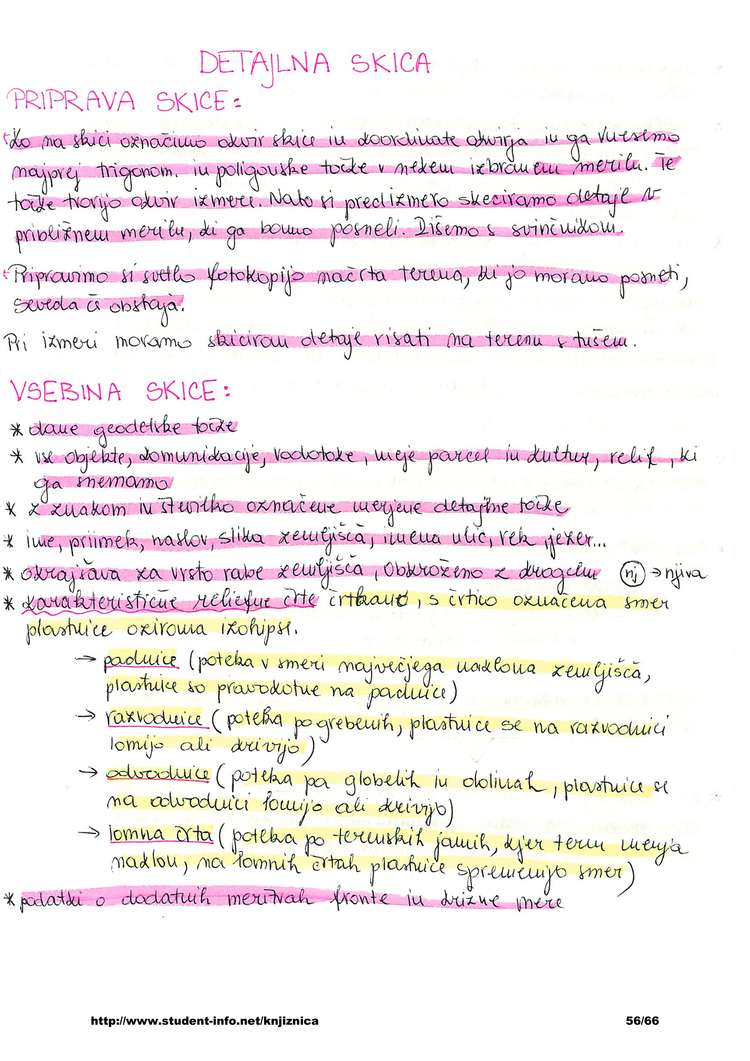 DETAJLNA SKICA
PRIPRAVA SKICE:
Ko na skici označimo okvir skice in koordinate okvirja in ga vnesemo
najprej trigonom. in poligonske točke v nekem izbranem merilu. Te
točke tvorijo okvir izmere. Nato si pred izmero skeciramo detaje v
približnem merilu, ki ga bomo posneli. Rišemo s svinčnikom.
Pripravimo si svetlo fotokopijo načrta terena, ki jo moramo posneti,
seveda če obstaja.
Pri izmeri moramo skiciran detaje risati na terenu s tušem.
VSEBINA SKICE:
* dane geodetske točke
* vse objekte, komunikacije, vodotoke, meje parcel in kultur, relief, ki
ga snemamo
* z znakom in številko označene merjene detajlne točke
* ime, priimek, naslov, slika zemljišča, imena ulic, rek, jezer...
* okrajšava za vrsto rabe zemljišča, obkroženo z drogim nj → njiva
* karakteristične reliefne črte črtkano, s črtico označena smer
plastnice oziroma izohipse.
→ padnice (poteka v smeri največjega naklona zemljišča,
plastnice so pravokotne na padnice)
→ razvodnice (poteka po grebenih, plastnice se na razvodnici
lomijo ali krivijo)
→ odvodnice (poteka po globelih in dolinah, plastnice se
na odvodnici lomijo ali krivijo)
→ lomna črta (poteka po terenskih jamih, kjer teren menja
naklon, na lomnih črtah plastnice spremenijo smer)
* podatki o dodatnih meritvah fronte in križne mere
http://www.student-info.net/knjiznica 56/66